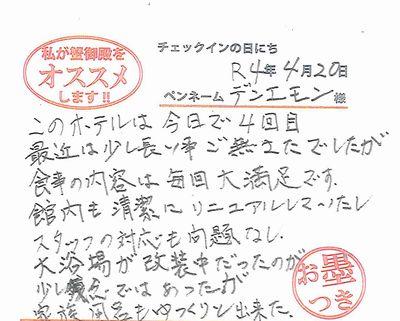 私が蟹御殿を
オススメ
します!!
チェックインの日にち
R4年4月20日
ペンネーム デンエモン 様
このホテルは今日で4回目
最近は少し長い事ご無さたでしたが
食事の内容は毎回大満足です.
館内も清潔にリニュアルしていたし
スタッフの対応も問題なし.
大浴場が改装中だったのが
少し残念ではあったが
家族風呂もゆっくり出来た.
お墨
つき